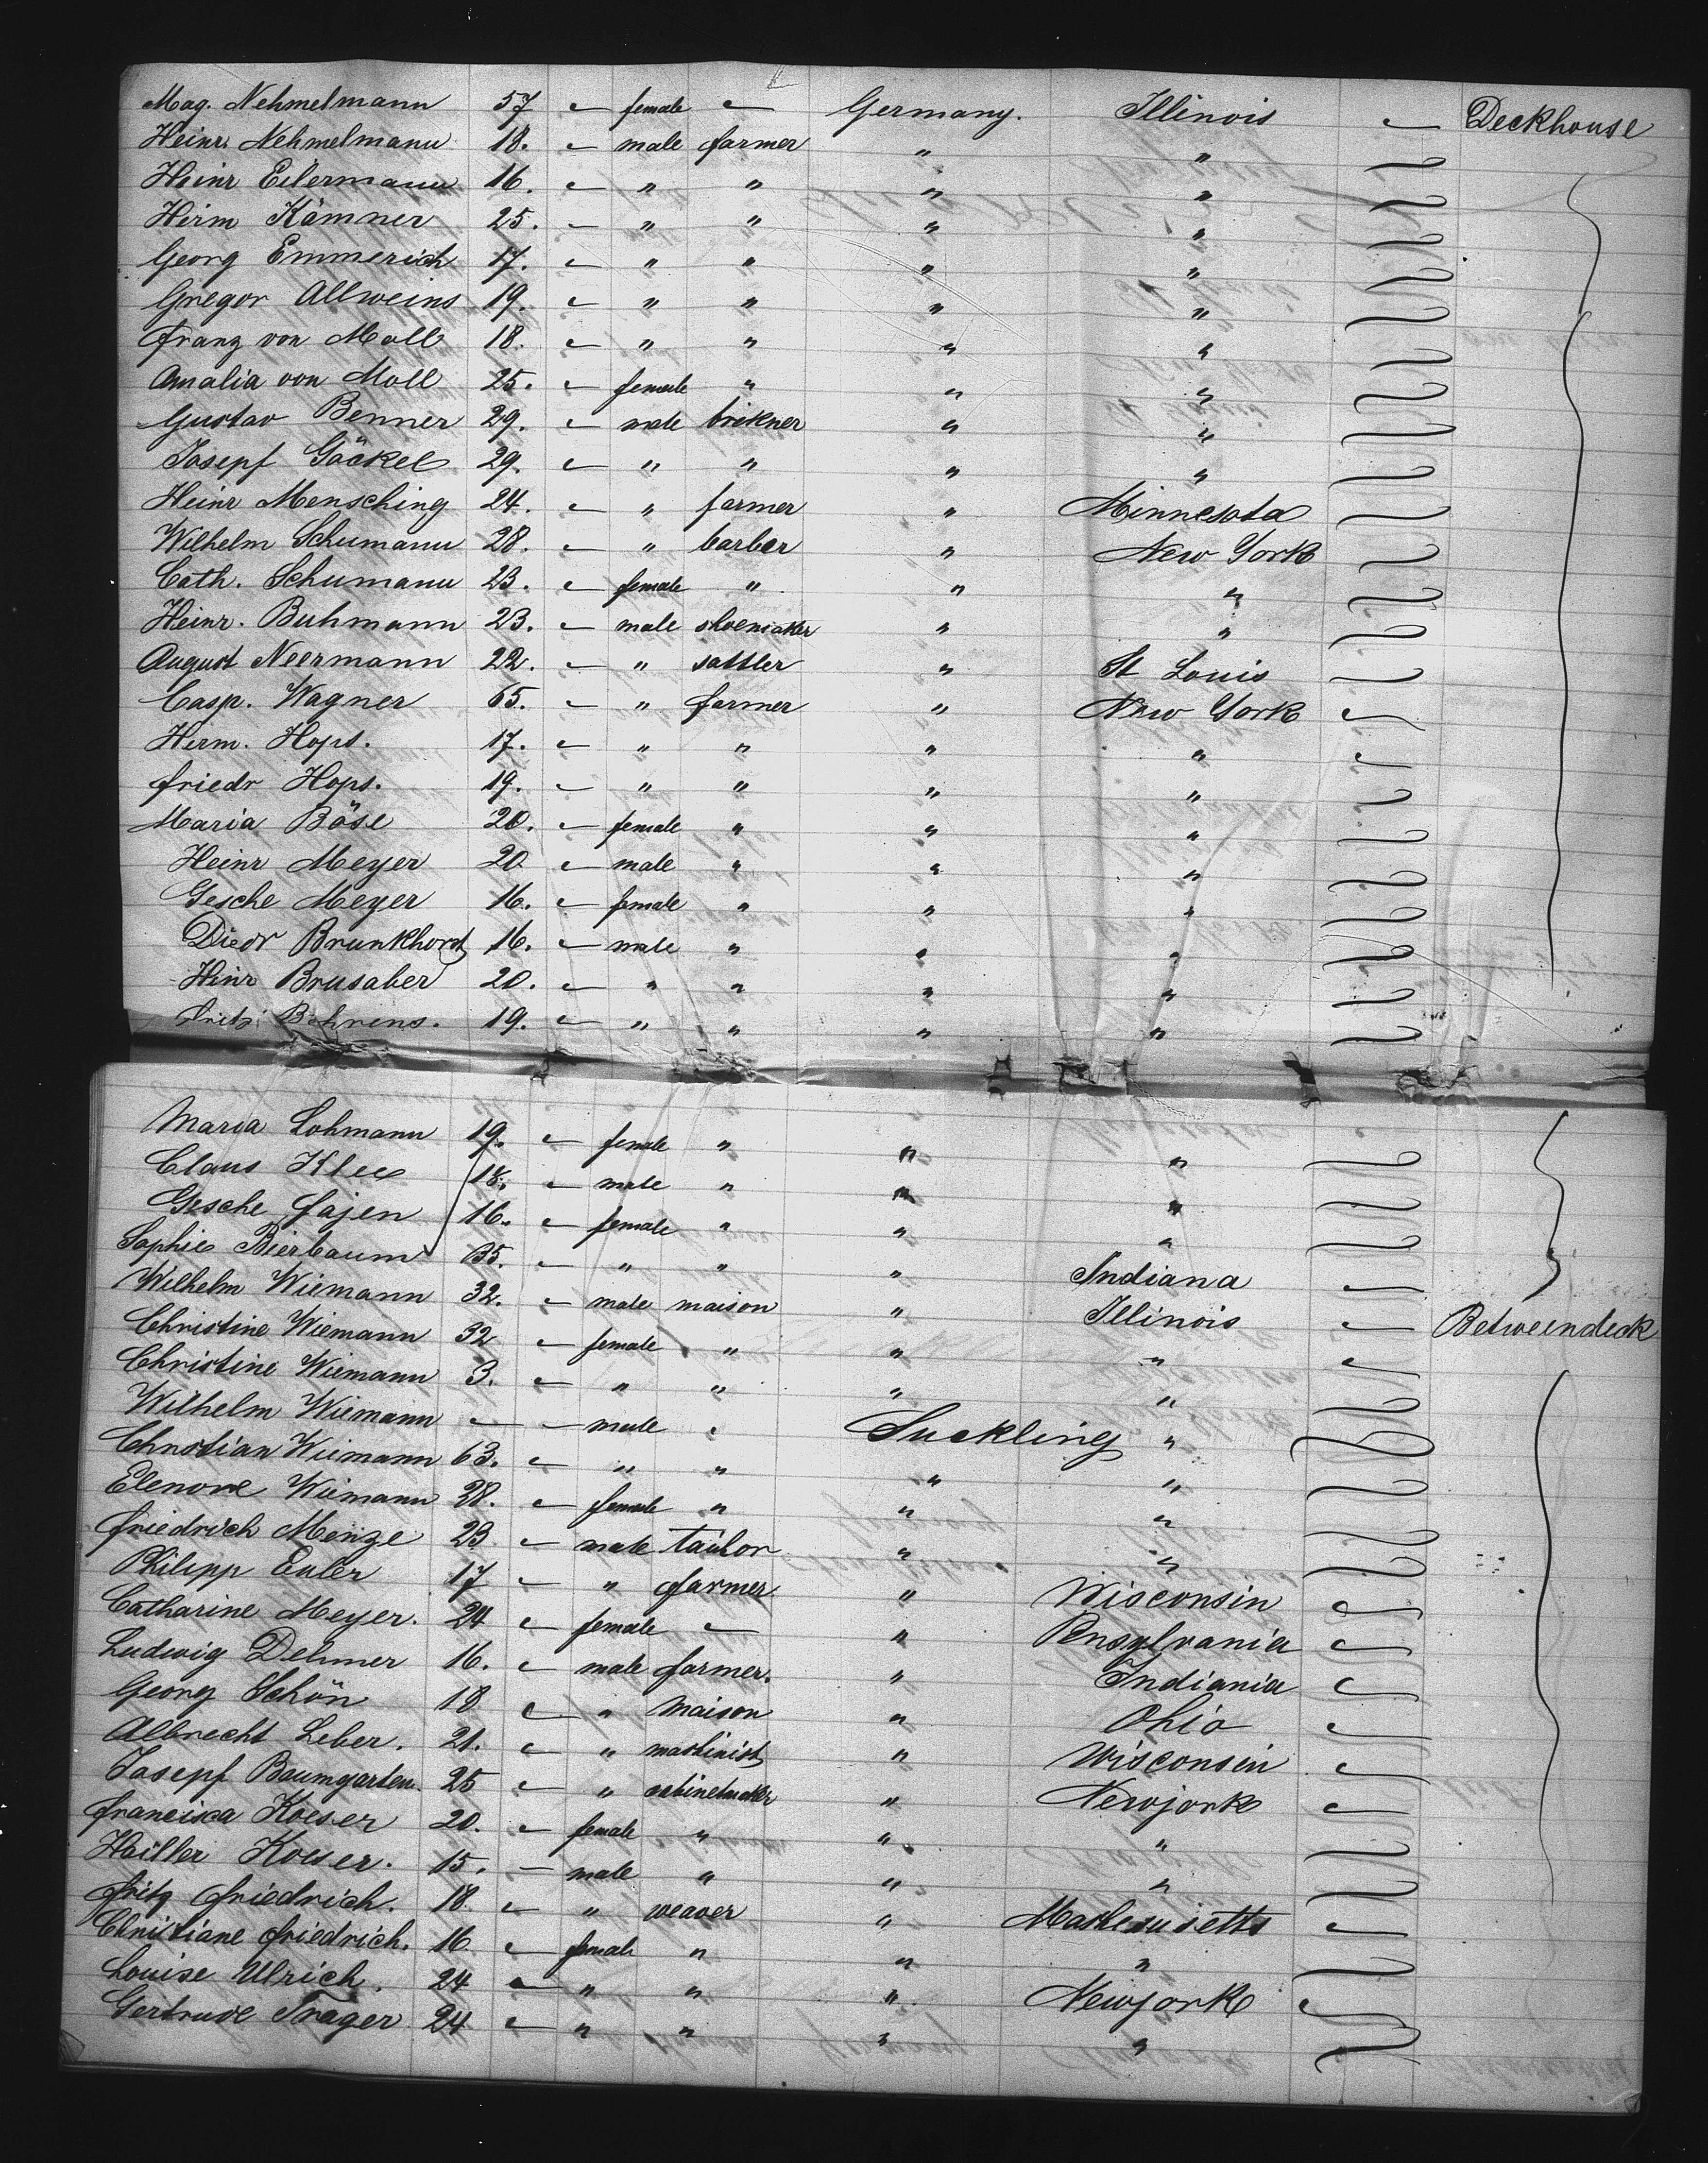 Mag. Nehmelmann 57 — female — Germany. Illinois — Deckhouse
Heinr. Nehmelmann 18. — male farmer " "
Heinr Eilermann 16. — " " " "
Herm Kämner 25. — " " " "
Georg Emmerich 17. — " " " "
Gregor Allweins 19. — " " " "
Franz von Moll 18. — " " " "
Amalia von Moll 25. — female " " "
Gustav Benner 29. — male brekner " "
Josepf Göckel 29. — " " " "
Heinr Mensching 24. — " farmer " Minnesota
Wilhelm Schumann 28. — " barber " New York
Cath. Schumann 23. — female " " "
Heinr. Buhmann 23. — male shoemaker " "
August Neermann 22. — " sattler " St Louis
Casp. Wagner 65. — " farmer " New York —
Herm. Hops. 17. — " " " " —
Friedr Hops. 19. — " " " "
Maria Böse 20. — female " " "
Heinr Meyer 20 — male " " "
Gesche Meyer 16. — female " " "
Diedr Brunkhorst 16. — male " " "
Hinr Brusaber 20. — " " " "
Fritz Behrens. 19. — " " " "
Maria Lohmann 19. — female " " "
Claus Klee 18. — male " " "
Gesche Fajen 16. — female " " "
Sophie Bierbaum 35. — " " " Indiana —
Wilhelm Wiemann 32. — male maison " Illinois — Betweendeck
Christine Wiemann 32 — female " " " —
Christine Wiemann 3. — " " " "
Wilhelm Wiemann — — male " Suckling "
Christian Wiemann 63. — " " " "
Elenore Wiemann 28. — female " " "
Friedrich Menze 23 — male tailor " "
Philipp Euler 17 — " farmer " Wisconsin —
Catharine Meyer. 24 — female — " Pensylvania —
Ludwig Dehmer 16. — male farmer. " Indiania —
Georg Schön 18 — " maison " Ohio —
Albrecht Leber. 21. — " mashinist " Wisconsin —
Josepf Baumgarten. 25 — " cabinetmaker " Newjork —
Franciska Koeser 20. — female " " "
Koeser. 15. — male " " "
Fritz Friedrich. 18. — " weaver " Mashesusetts —
Christiane Friedrich. 16. — female " " "
Louise Ulrich. 24 — " " " Newjork —
Gertrude Trager 24 — " " " "